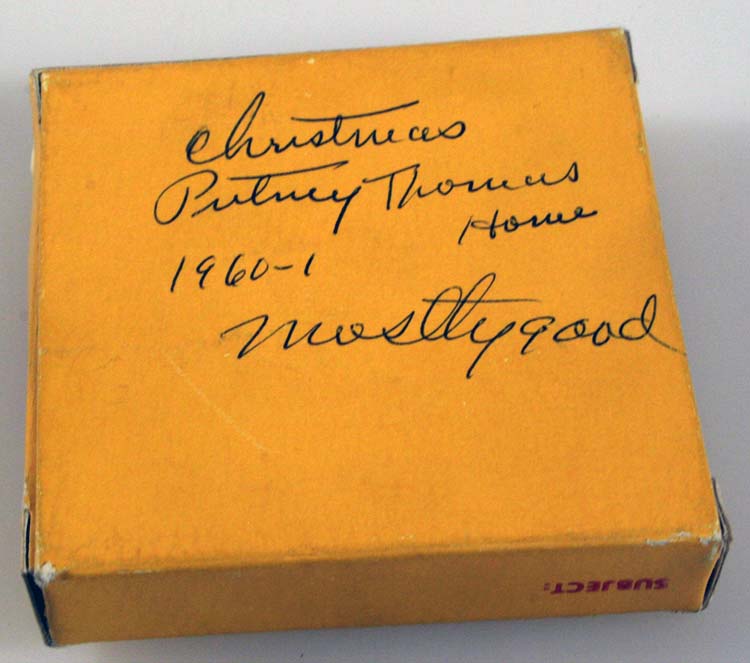 Christmas
Putney Thomas
Home
1960-1
Mostly good
SUBJECT: